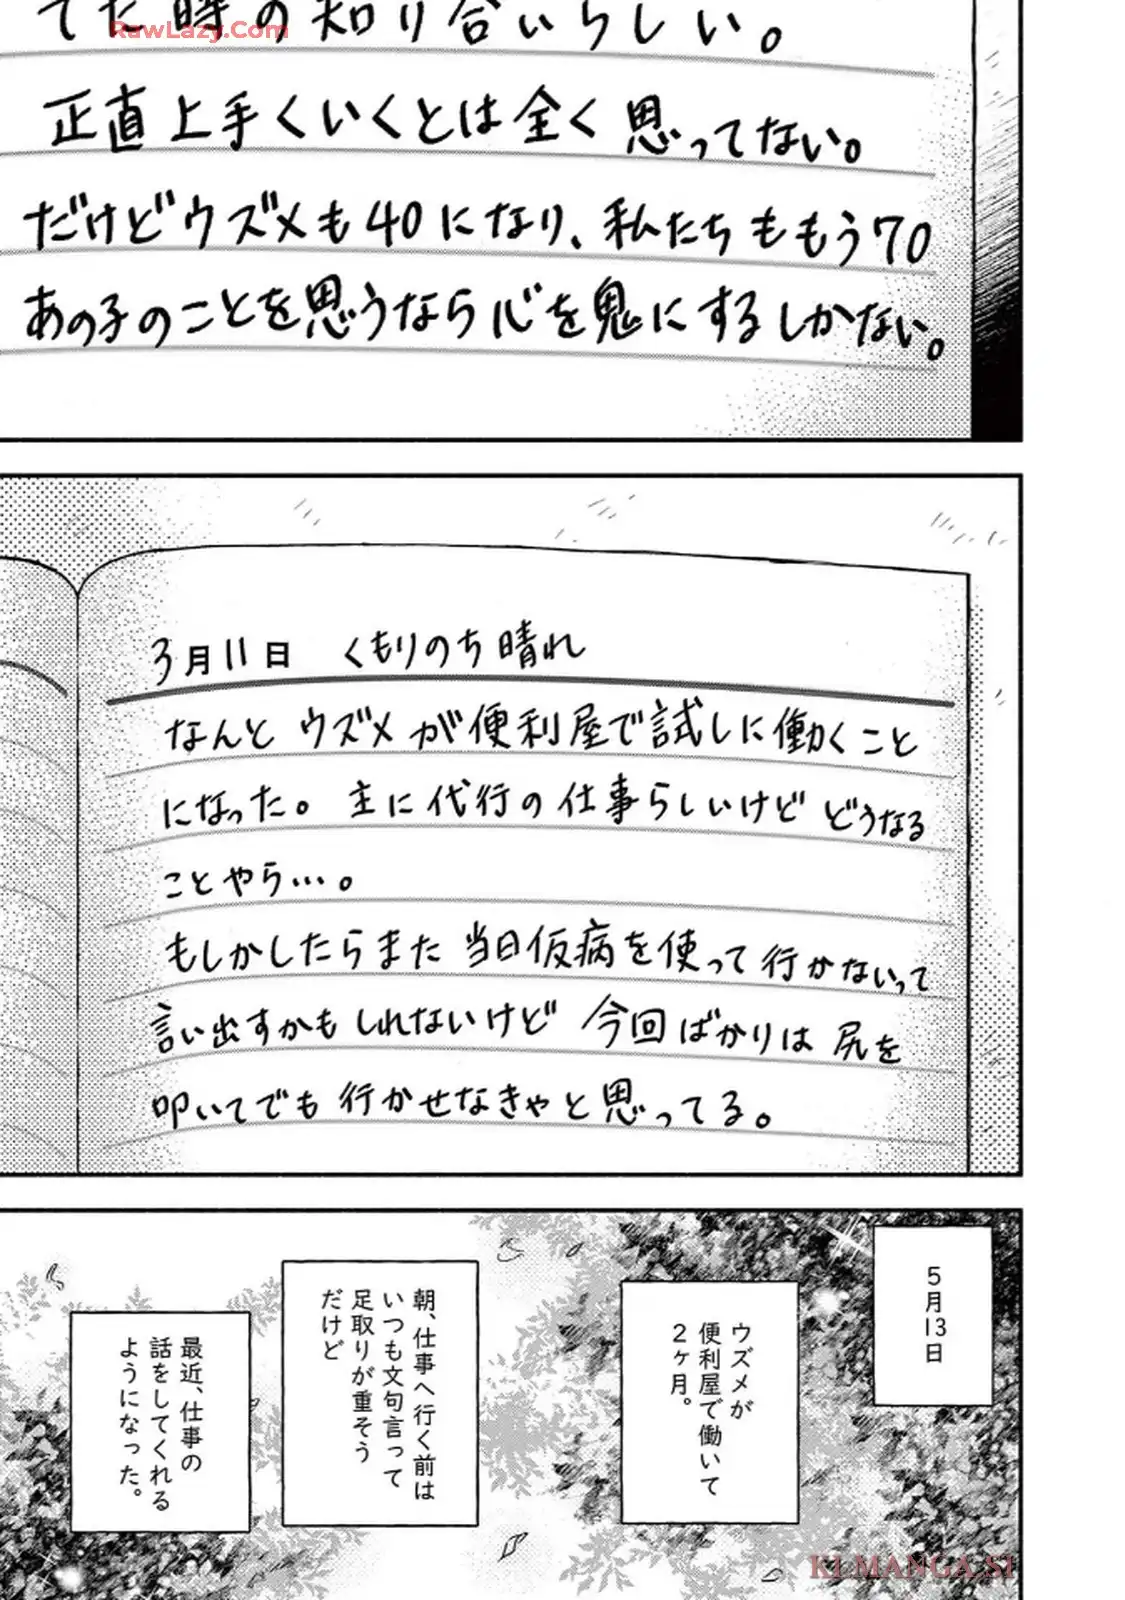 てた時の知り合いらしい。
RawLazy.Com
正直上手くいくとは全く思ってない。
だけどウズメも40になり、私たちももう70
あの子のことを思うなら心を鬼にするしかない。
3月11日 くもりのち晴れ
なんとウズメが便利屋で試しに働くこと
になった。主に代行の仕事らしいけどどうなる
ことやら…。
もしかしたらまた当日仮病を使って行かないって
言い出すかもしれないけど今回ばかりは尻を
叩いてでも行かせなきゃと思ってる。
5月13日
ウズメが
便利屋で働いて
2ヶ月。
朝、仕事へ行く前は
いつも文句言って
足取りが重そう
だけど
最近、仕事の
話をしてくれる
ようになった。
KLMANGA.SI